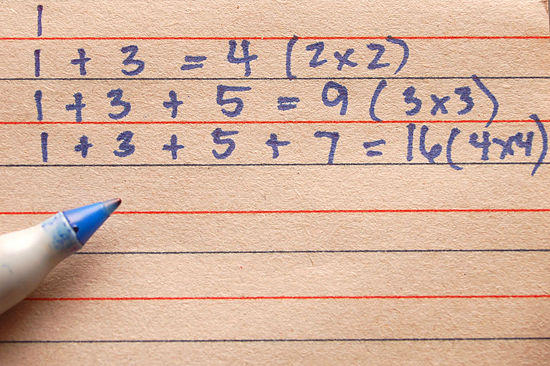 1
1 + 3 = 4 (2x2)
1 + 3 + 5 = 9 (3x3)
1 + 3 + 5 + 7 = 16 (4x4)